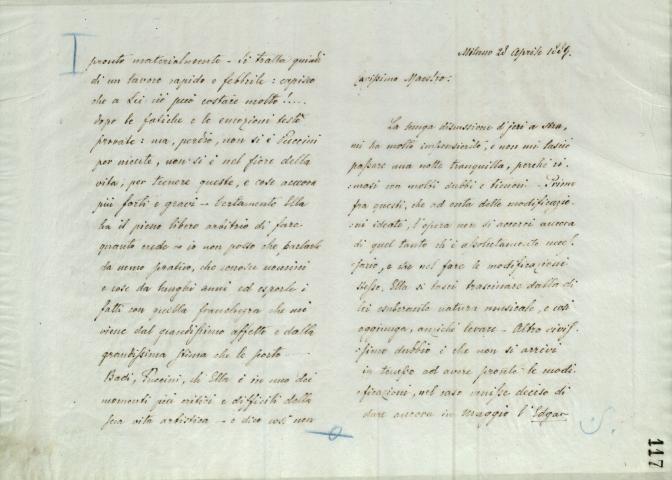 Milano 28 Aprile 1889.
Carissimo Maestro:
La lunga discussione d'jeri a sera,
mi ha molto impensierito, e non mi lasciò
passare una notte tranquilla, perchè ri-
:masi con molti dubbi e timori. - Primo
fra questi, che ad onta delle modificazio-
:ni ideate, l'opera non si accorci ancora
di quel tanto ch'è assolutamente neces-
:sario, e che nel fare le modificazioni
stesse, Ella si lasci trascinare dalla di
lei esuberante natura musicale, e così
aggiunga, anzichè levare - Altro vivis-
:simo dubbio è che non si arrivi
in tempo ad avere pronte le modi-
:ficazioni, nel caso venisse deciso di
dare ancora in Maggio l'Edgar
pronto materialmente - Si tratta quindi
di un lavoro rapido e febbrile: capisco
che a Lei ciò può costare molto!....
dopo le fatiche e le emozioni testè
provate: ma, perdio, non si è Puccini
per niente, non si è nel fiore della
vita, per temere queste, e cose ancora
più forti e gravi - Certamente Ella
ha il pieno libero arbitrio di fare
quanto crede - io non posso che parlarle
da uomo pratico, che conosce uomini
e cose da lunghi anni ed esporle i
fatti con quella franchezza che mi
viene dal grandissimo affetto e dalla
grandissima stima che le porto
Badi, Puccini, ch'Ella è in uno dei
momenti più critici e difficili della
sua vita artistica - e dico così non
117